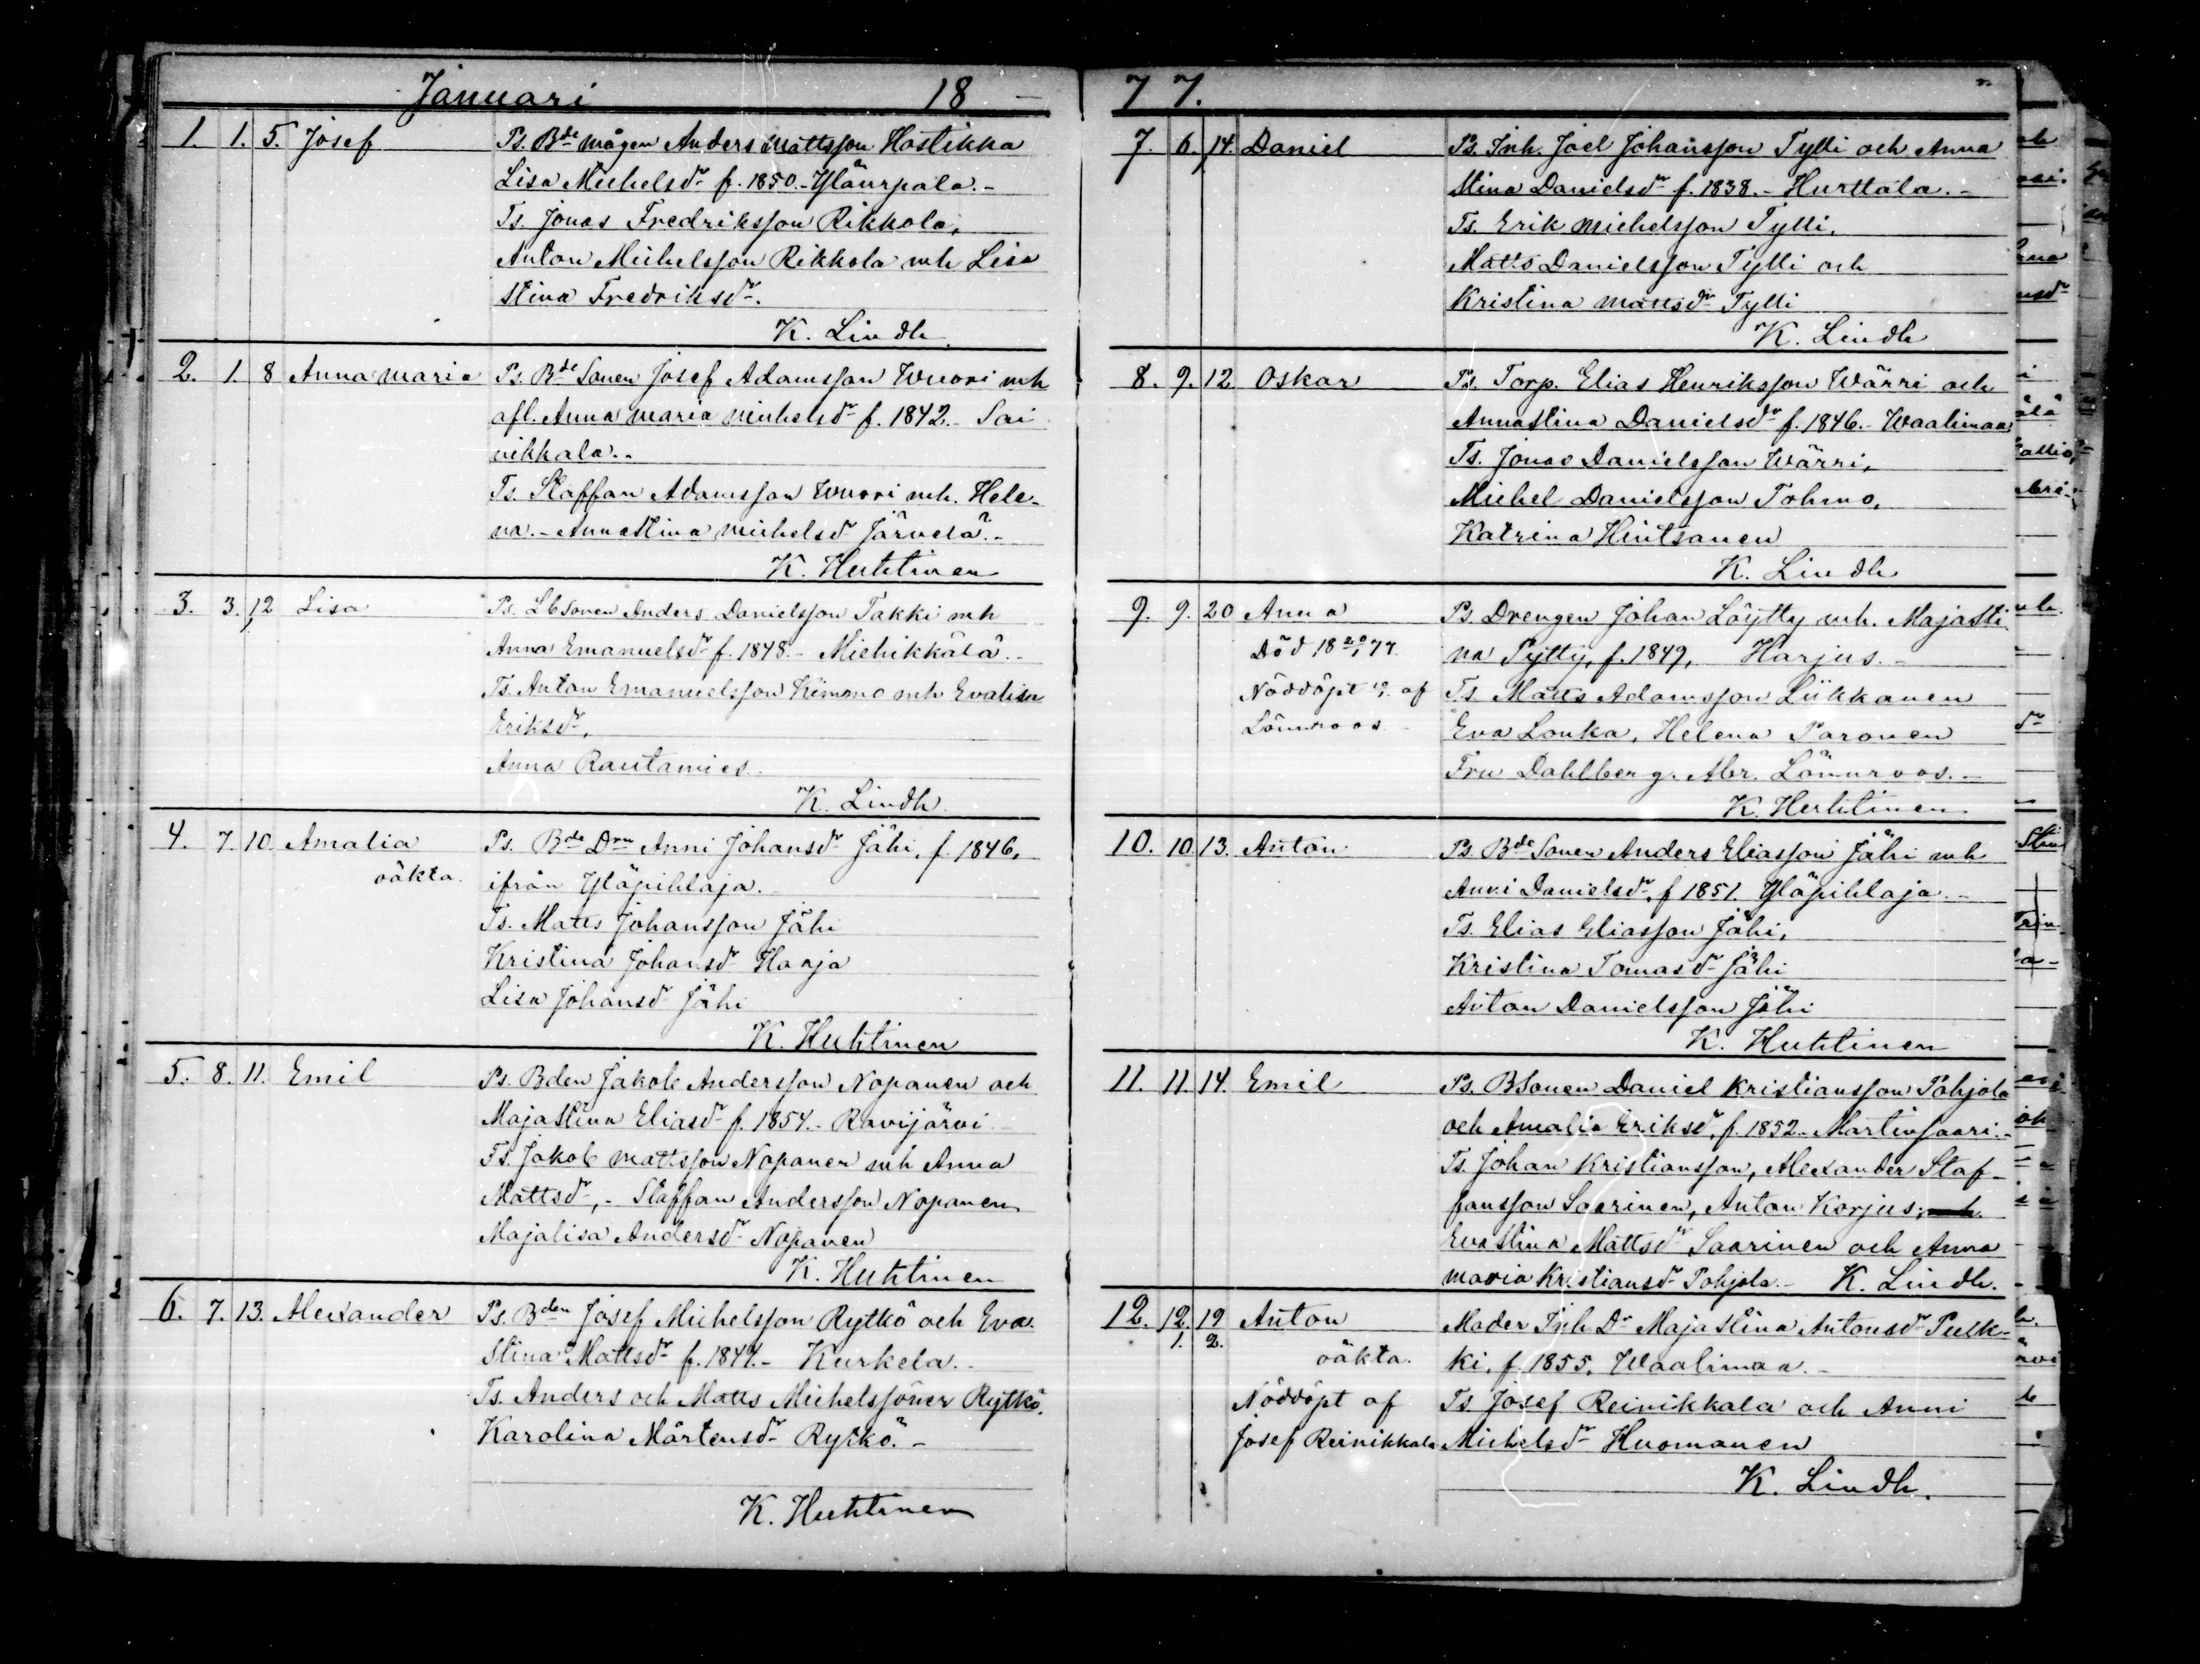 Januari 18 —
1. 1. 5. Josef Ps. Bde mågen Anders Mattsson Hostikka
Lisa Michelsdr f. 1850. - Yläurpala. -
Ts. Jonas Fredriksson Rikkola,
Anton Michelsson Rikkola mh Lisa
Stina Fredriksdr.
K. Lindh.
2. 1. 8 Anna Maria Ps. Bde Sonen Josef Adamsson Wuori mh
afl. Anna Maria Michelsdr f. 1842. - Sai
vikkala. -
Ts. Staffan Adamsson Wuori mh. Hele-
na. - Annastina Michelsd Järvelä. -
K. Huhtinen
3. 3. 12 Lisa Ps. Lbsonen Anders Danielsson Takki mh
Anna Emanuelsdr f. 1848. - Miehikkälä. -
Ts. Anton Emanuelsson Kimmo mh Evalisa
Eriksdr,
Anna Rautamies.
K. Lindh.
4. 7. 10. Amalia Ps. Bde Drn Anni Johansdr Jähi, f. 1846,
oäkta. ifrån Yläpihlaja.
Ts. Matts Johansson Jähi
Kristina Johansdr Harja
Lisa Johansdr Jähi
K. Huhtinen
5. 8. 11. Emil Ps. Bden Jakob Andersson Nopanen och
Majastina Eliasdr f. 1854. - Ravijärvi -
Ts. Jakob Mattsson Nopanen mh Anna
Mattsdr, - Staffan Andersson Nopanen
Majalisa Andersdr Nopanen
K. Huhtinen
6. 7. 13. Alexander Ps. Bden Josef Michelsson Rytkö och Eva
Stina Mattsdr f. 1847. - Kurkela. -
Ts. Anders och Matts Michelssöner Rytkö,
Karolina Mårtensdr Rytkö. -
K. Huhtinen
77.
7. 6. 14. Daniel Ps. Inh. Joel Johansson Tylli och Anna
Stina Danielsdr f. 1838. - Hurttala. -
Ts. Erik Michelsson Tylli,
Matts Danielsson Tylli och
Kristina Mattsdr Tylli
K. Lindh
8. 9. 12 Oskar Ps. Torp. Elias Henriksson Wärri och
Annastina Danielsdr f. 1846. - Waalimaa
Ts. Jonas Danielsson Wärri,
Michel Danielsson Tohmo,
Katrina Hintsanen
K. Lindh
9. 9. 20 Anna Ps. Drengen Johan Löytty mh. Majasti
Död 18 20/1 77. na Pytty, f. 1849, Harjus. -
Nöddöpt 19. af Ts. Matts Adamsson Liikkanen
Lönnroos Eva Louka, Helena Paronen
Fru Dahlberg. Abr. Lönnroos. -
K. Huhtinen
10. 10. 13. Anton Ps. Bde Sonen Anders Eliasson Jähi mh
Anni Danielsdr, f 1851. Yläpihlaja. -
Ts. Elias Eliasson Jähi,
Kristina Tomasdr Jähi
Anton Danielsson Jähi
K. Huhtinen
11. 11. 14. Emil Ps. BSonen Daniel Kristiansson Pohjola
och Amalia Eriksdr, f. 1852. - Martinsaari. -
Ts. Johan Kristiansson, Alexander Staf-
fansson Saarinen, Anton Korjus,
Evastina Mattsdr Saarinen och Anna
Maria Kristiansdr Pohjola. - K. Lindh.
12. 12. 19 Anton Moder Inh Dr Majastina Antonsdr Pulk-
1. 2. oäkta. ki, f. 1855, Waalimaa. -
Nöddöpt af Ts Josef Reinikkala och Anni
Josef Reinikkala Michelsdr Huomanen
K. Lindh.